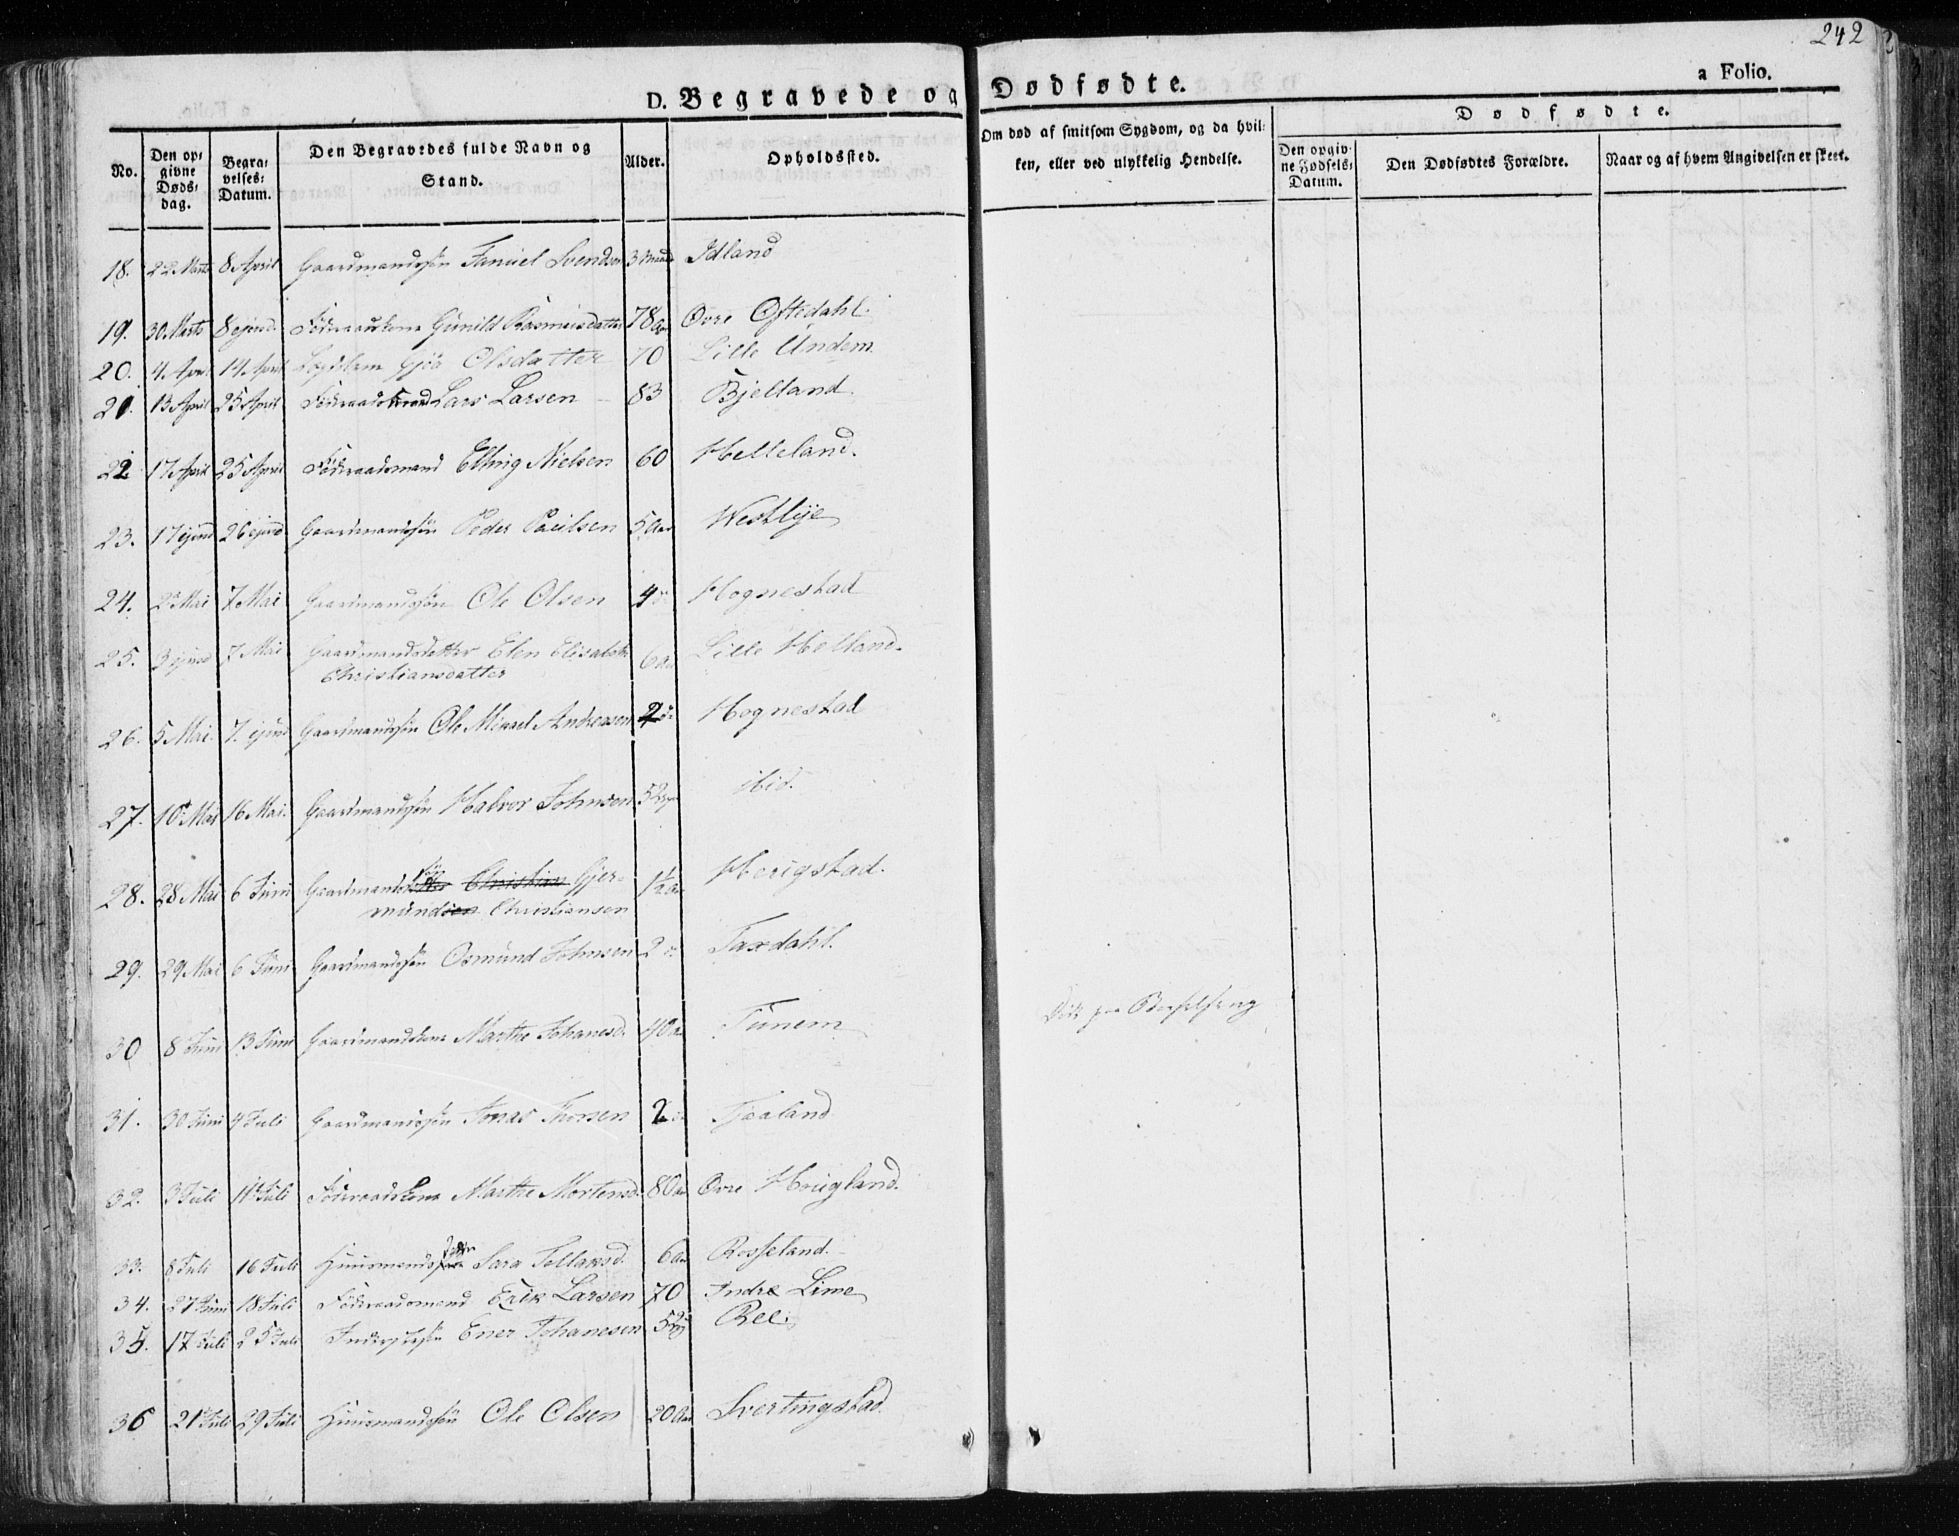 242
D. Begravede og Dødfødte.
a Folio.
No.
Den opgivne Døds-dag.
Begravelses-Datum.
Den Begravedes fulde Navn og Stand.
Alder.
Opholdssted.
Om død af smitsom Sygdom, og da hvilken, eller ved ulykkelig Hendelse.
Dødfødte.
Den opgivne Fødsels-Datum.
Den Dødfødtes Forældre.
Naar og af hvem Angivelsen er skeet.
18. 22 Marts 8 April Gaardmandssøn Svendsen Idland
19. 30 Marts 8 ejusd. Föderaadskone Gunild Rasmusdatter 78 Aar Øvre Oftedahl.
20. 4 April 14 April Lægdslem Gjöa Olsdatter 70 Lille Undem
21. 13 April 25 April Föderaadsmand Lars Larsen 83 Bjelland.
22 17 April 25 April Föderaadsmand Elling Nielsen 60 Helleland.
23. 17 ejusd 26 ejusd. Gaardmandssön Peder Paulsen 5 Aar Westlye
24. 2 Mai 7 Mai Gaardmandssön Ole Olsen 4 Hognestad
25. 3 ejusd 7 Mai Gaardmandsdatter Elen Elisabeth 6 Aar Lille Helland.
Christiansdatter
26. 5 Mai. 7. ejusd Gaardmandssön Ole Mikael Andreasen 2 Hognestad
27. 10 Mai 16 Mai. Gaardmandssön Halvor Johnsen 52 ibid.
28. 28 Mai 6 Juni Gaardmands sön Christian Gjer-
mundsen Christiansen 1½ Aar Herigstad.
29. 29 Mai 6 Juni Gaardmandssön Osmund Johnsen 2 Taxdahl.
30 8 Juni 13 Juni Gaardmandskone Marthe Johanesd. 40 Aar Tunem
31. 30 Juni 4 Juli Gaardmandssön Jonas Thorsen 2 Tjaland
32. 3 Juli 11 Juli Föderaadskone Marthe Mortensd. 80 Aar Øvre Hougland.
33. 8 Juli 16 Juli Huusmands datter Sara Tollaksd. 6 Aar Rosseland.
34. 27 Juni 18 Juli Föderaadsmand Erik Larsen 70 Indre Lime
35. 17 Juli 25 Juli Ener Johanesen Ree.
36 21 Juli 29 Juli Huusmandssön Ole Olsen 20 Aar Svertingstad.